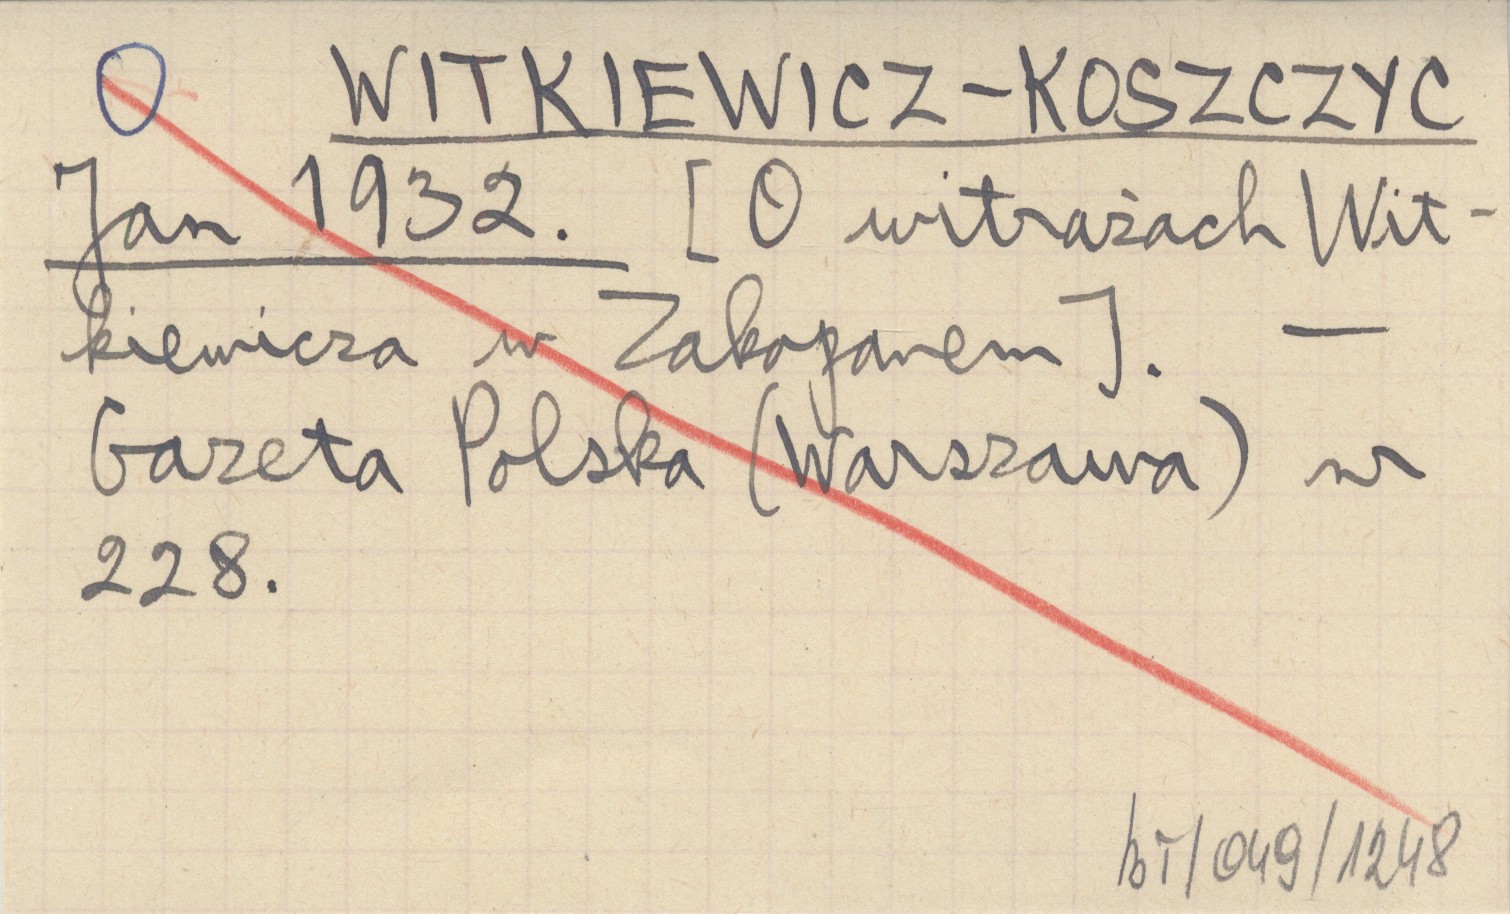 O WITKIEWICZ-KOSZCZYC
Jan 1932. [O witrażach Wit-
kiewicza w Zakopanem]. —
Gazeta Polska (Warszawa) nr
228.
BT/049/1248